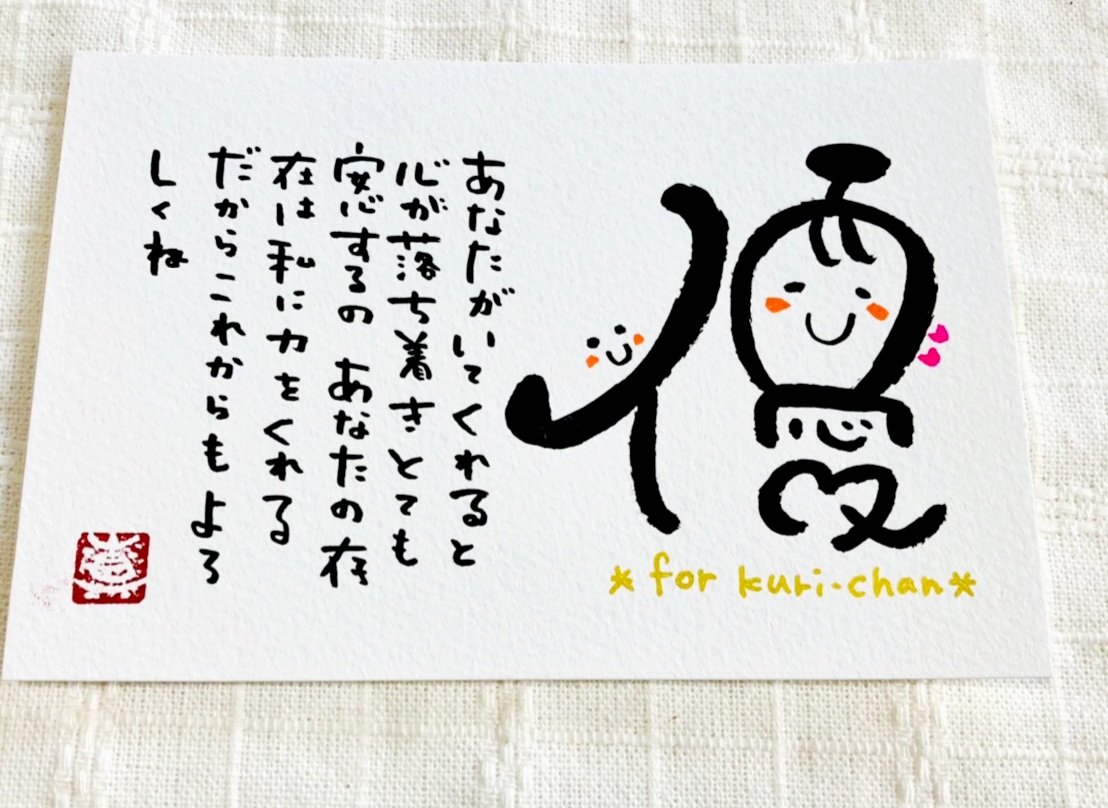 優
あなたがいてくれると
心が落ち着きとても
安心するの あなたの存
在は私に力をくれる
だからこれからもよろ
しくね
*for kuri-chan*